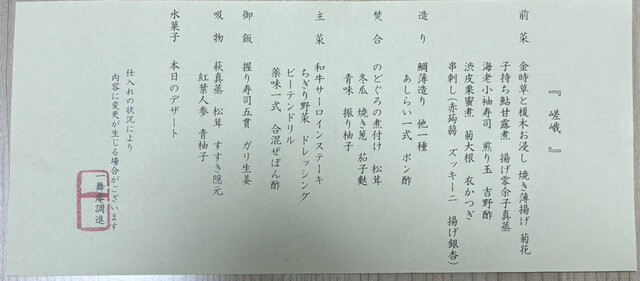 『 嵯峨 』
前菜 金時草と榎木お浸し 焼き薄揚げ 菊花
子持ち鮎甘露煮 揚げ零余子真蒸
海老小袖寿司 煎り玉 吉野酢
渋皮栗蜜煮 菊大根 衣かつぎ
串刺し(赤蒟蒻 ズッキーニ 揚げ銀杏)
造り 鯛薄造り 他一種
あしらい一式 ポン酢
焚合 のどぐろの煮付け 松茸
冬瓜 焼き葱 茄子麩
青味 振り柚子
主菜 和牛サーロインステーキ
ちぎり野菜 ドレッシング
ピーテンドリル
薬味一式 合混ぜぽん酢
御飯 握り寿司五貫 ガリ生姜
吸物 萩真蒸 松茸 すすき隠元
紅葉人参 青柚子
水菓子 本日のデザート
仕入れの状況により
内容に変更が生じる場合がございます
一舞庵調進